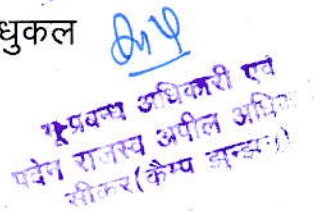 धुकल
भू-प्रबन्ध अधिकारी एवं
पदेन राजस्व अपील अधिका
सीकर (कैम्प झुन्झुनू)